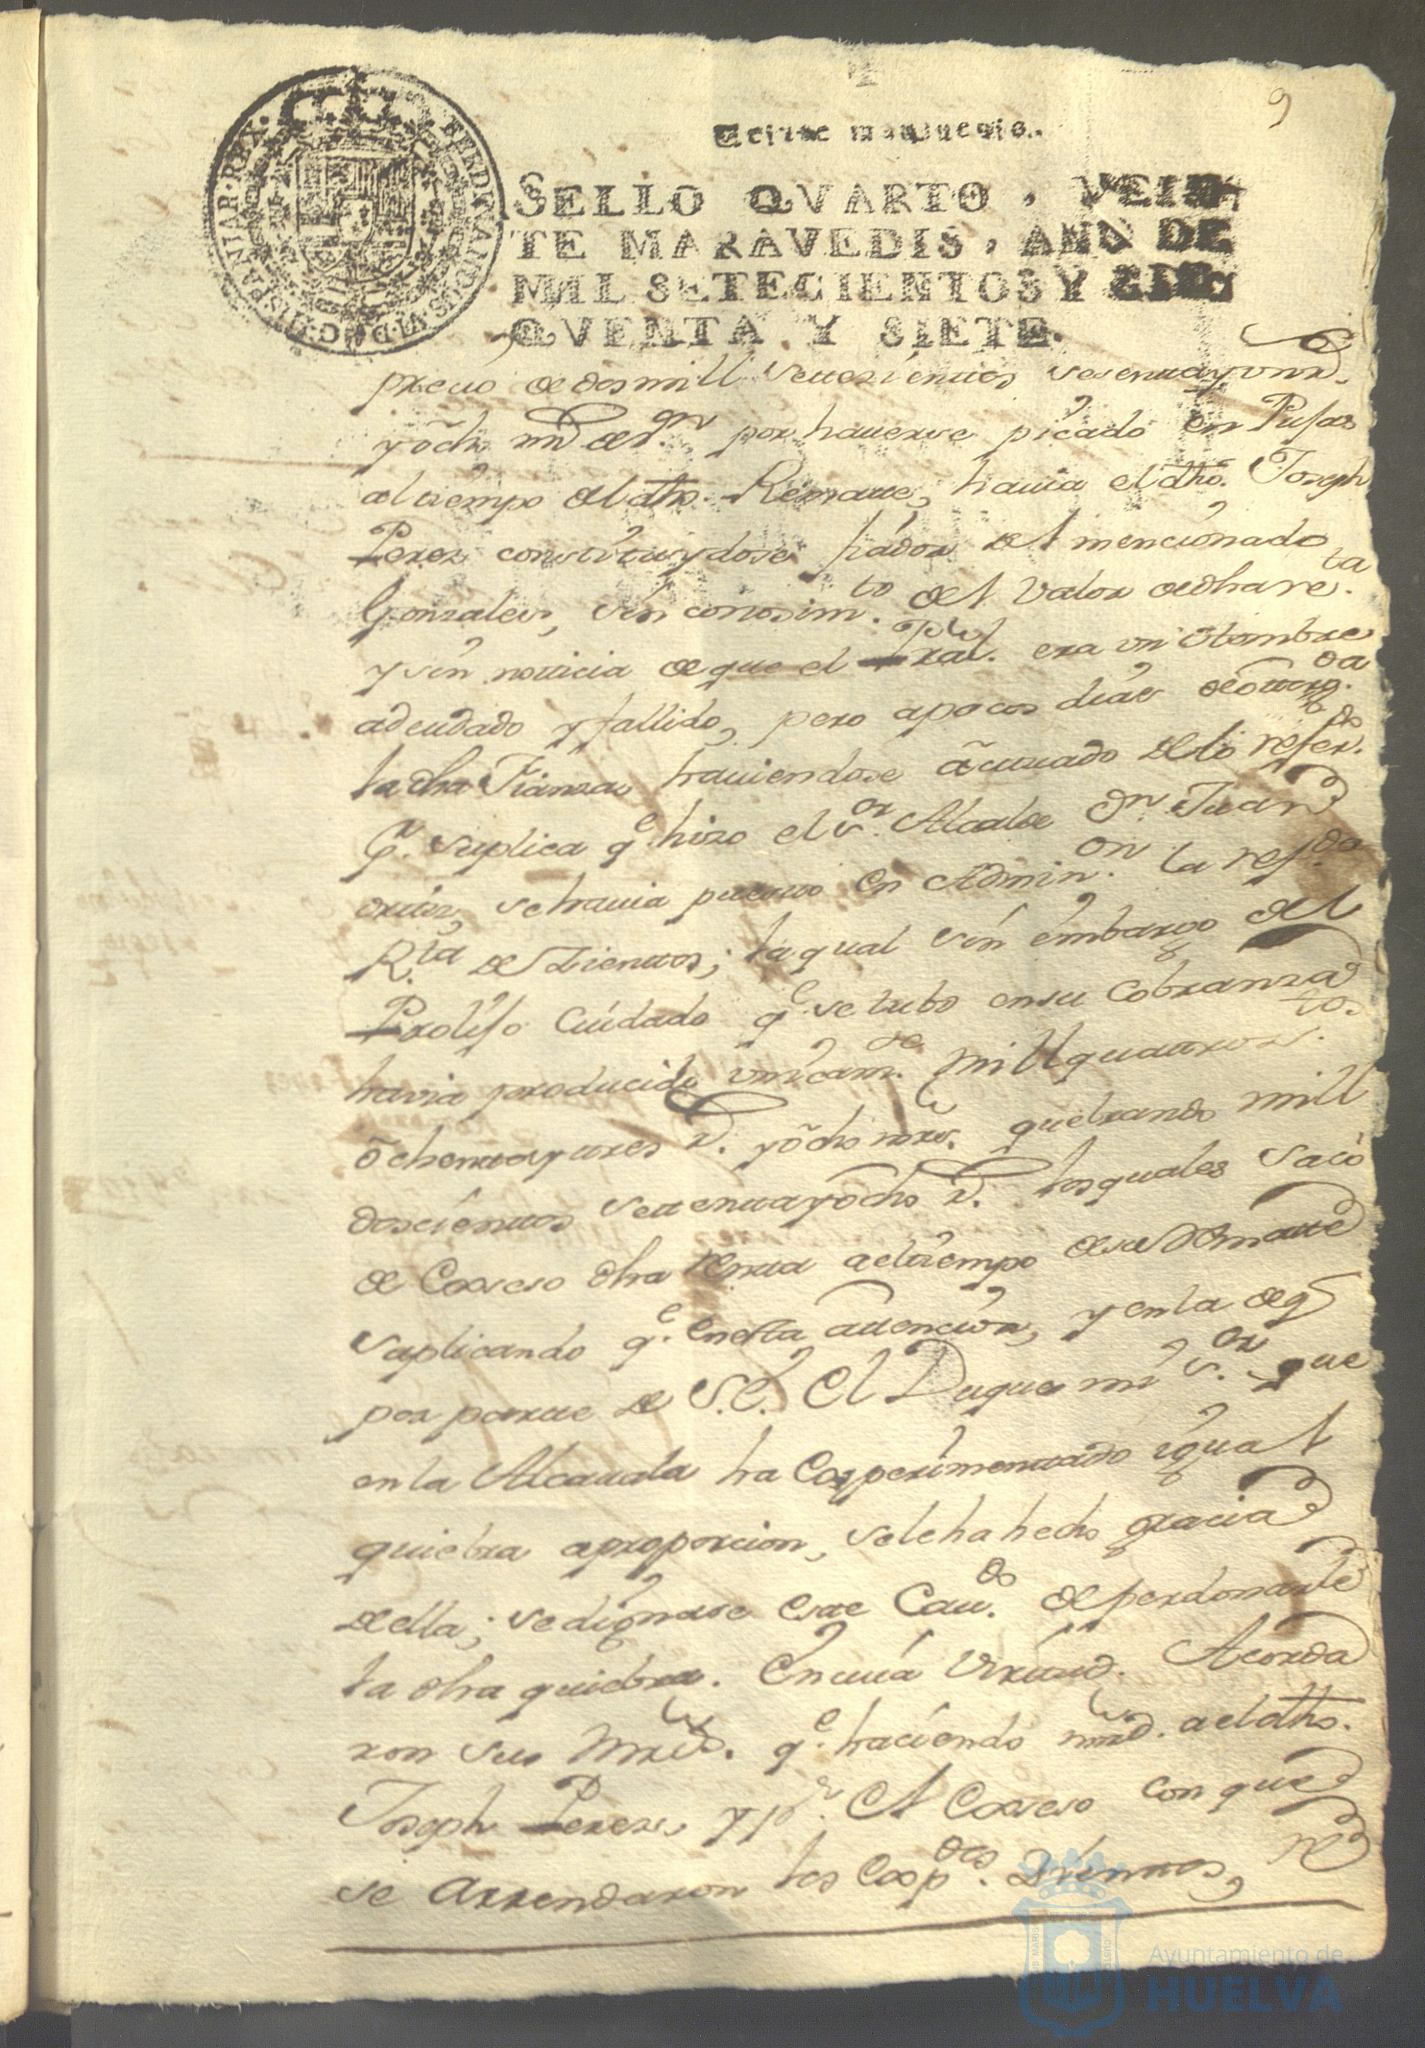 9
Veinte maravedis.
SELLO QVARTO, VEIN
TE MARAVEDIS, AÑO DE
MIL SETECIENTOS Y CIN
QVENTA Y SIETE.
FERDINANDUS VI D G HISPANIAR REX
precio de dos mill setezientos sesenta y un rs.
y ôcho mrs. de von. por haverse picado en Pujas
al tiempo del dho. Remate, havia el dho. Joseph
Perez constituydose fiador del mencionado
Gonzales, sin conosimto. del valor de dha reta.
y sin noticia de que el Pral. era un Hombre
adeudado y fallido, pero a pocos dias de ôtorgda.
la dha Fianza, haviendose âcturado de lo referdo.
Pr. suplica qe. hizo el Sor. Alcalde Dn. Juan
ortiz, se havia puesto en Adminon. la refda.
Rta. de Vientos; la qual sin embargo del
Prolijo Cuidado qe. se tubo en su Cobranza
havia producido unicamte. Mill quatrozstos.
ôchenta y tres rs. y ôcho mrs. quebrando mill
doscientos setenta y ôcho rs. los quales sacó
de Exseso dha Renta a el tiempo de su Remate
suplicando qe. en esta attencion, y en la de q
por parte de S.E. El Duque mi Sor. que
en la Alcavala ha Experimentado igual
quiebra a proporcion, se le ha hecho gracia
de ella; se dignase este Cavdo. de perdonarle
la dha quiebra. En cuia virtud. Acorda
ron sus Mrds. qe. haciendo mrd. a el dho.
Joseph Perez, y pr. el Exseso con que
se Arrendaron los Expdos. Vientos, re
Ayuntamiento de
HUELVA